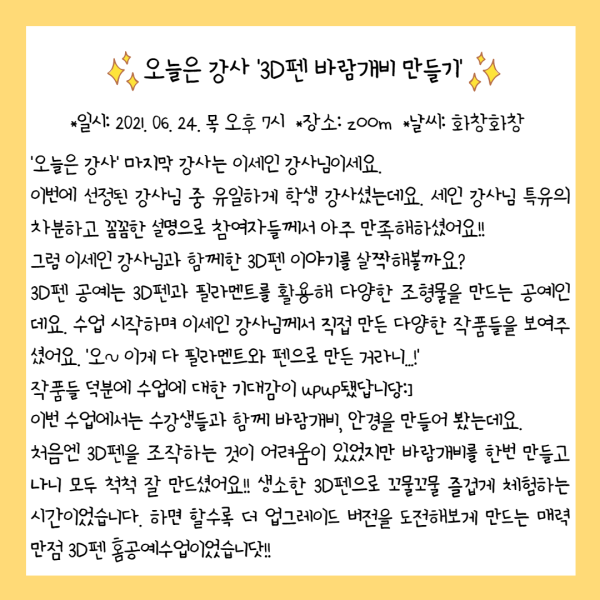 오늘은 강사 '3D펜 바람개비 만들기'
*일시: 2021. 06. 24. 목 오후 7시 *장소: zoom *날씨: 화창화창
'오늘은 강사' 마지막 강사는 이세인 강사님이세요.
이번에 선정된 강사님 중 유일하게 학생 강사셨는데요. 세인 강사님 특유의
차분하고 꼼꼼한 설명으로 참여자들께서 아주 만족해하셨어요!!
그럼 이세인 강사님과 함께한 3D펜 이야기를 살짝해볼까요?
3D펜 공예는 3D펜과 필라멘트를 활용해 다양한 조형물을 만드는 공예인
데요. 수업 시작하며 이세인 강사님께서 직접 만든 다양한 작품들을 보여주
셨어요. '오~ 이게 다 필라멘트와 펜으로 만든 거라니...!'
작품들 덕분에 수업에 대한 기대감이 upup됐답니당:]
이번 수업에서는 수강생들과 함께 바람개비, 안경을 만들어 봤는데요.
처음엔 3D펜을 조작하는 것이 어려움이 있었지만 바람개비를 한번 만들고
나니 모두 척척 잘 만드셨어요!! 생소한 3D펜으로 꼬물꼬물 즐겁게 체험하는
시간이었습니다. 하면 할수록 더 업그레이드 버전을 도전해보게 만드는 매력
만점 3D펜 홈공예수업이었습니닷!!